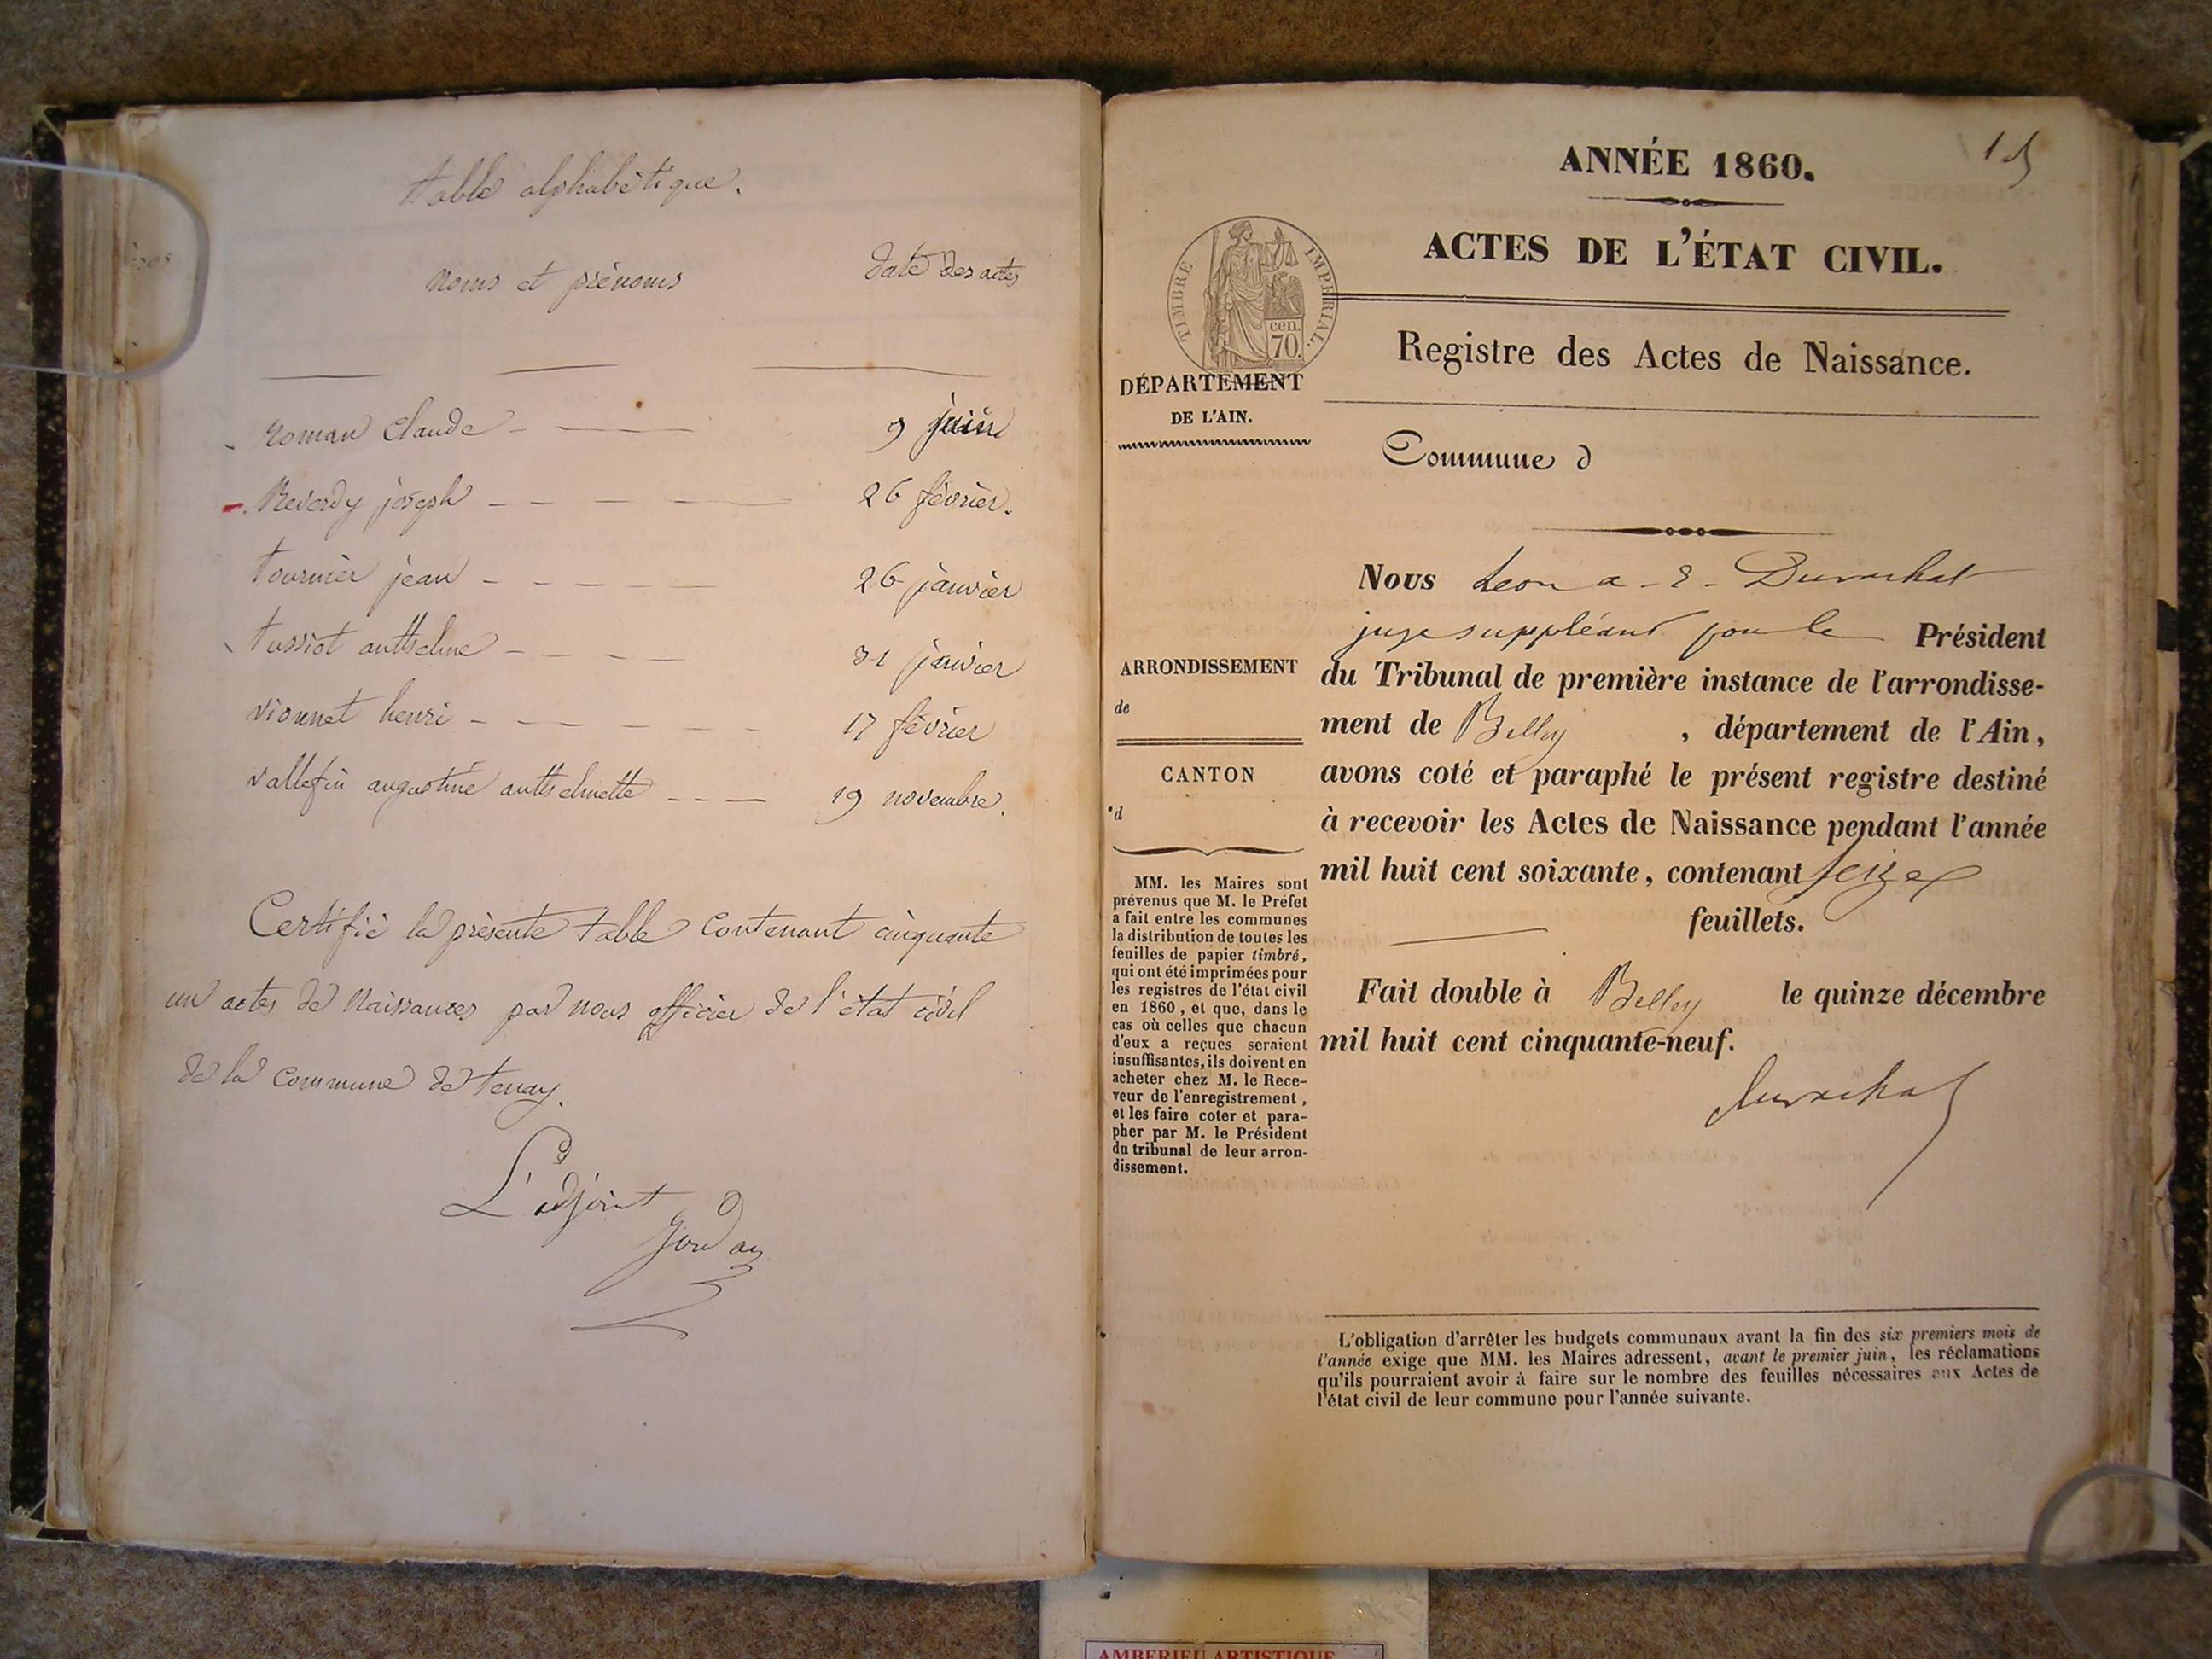 table alphabètique.
noms et prénoms
date des actes
roman claude
9 juin
Reverdy joseph
26 février.
tournier jean
26 janvier
tussiot antthelme
31 janvier
vionnet henri
17 février
vallefin augustine antthelmette
19 novembre.
Certifié la présente table contenant cinquante
un actes de Naissances par nous officier de l'état civil
de la commune de tenay.
L'adjoint
ANNÉE 1860.
15
ACTES DE L'ÉTAT CIVIL.
TIMBRE IMPÉRIAL.
cen.
70.
Registre des Actes de Naissance.
DÉPARTEMENT
DE L'AIN.
Commune d
Nous Leon a - E - Durochat
juge suppléant pour le Président
du Tribunal de première instance de l'arrondisse-
ment de Belley , département de l'Ain,
avons coté et paraphé le présent registre destiné
à recevoir les Actes de Naissance pendant l'année
mil huit cent soixante, contenant seize
feuillets.
Fait double à Belley le quinze décembre
mil huit cent cinquante-neuf.
Durochat
ARRONDISSEMENT
de
CANTON
d
MM. les Maires sont
prévenus que M. le Préfet
a fait entre les communes
la distribution de toutes les
feuilles de papier timbré,
qui ont été imprimées pour
les registres de l'état civil
en 1860, et que, dans le
cas où celles que chacun
d'eux a reçues seraient
insuffisantes, ils doivent en
acheter chez M. le Rece-
veur de l'enregistrement,
et les faire coter et para-
pher par M. le Président
du tribunal de leur arron-
dissement.
L'obligation d'arrêter les budgets communaux avant la fin des six premiers mois de
l'année exige que MM. les Maires adressent, avant le premier juin, les réclamations
qu'ils pourraient avoir à faire sur le nombre des feuilles nécessaires aux Actes de
l'état civil de leur commune pour l'année suivante.
AMBERIEU ARTISTIQUE